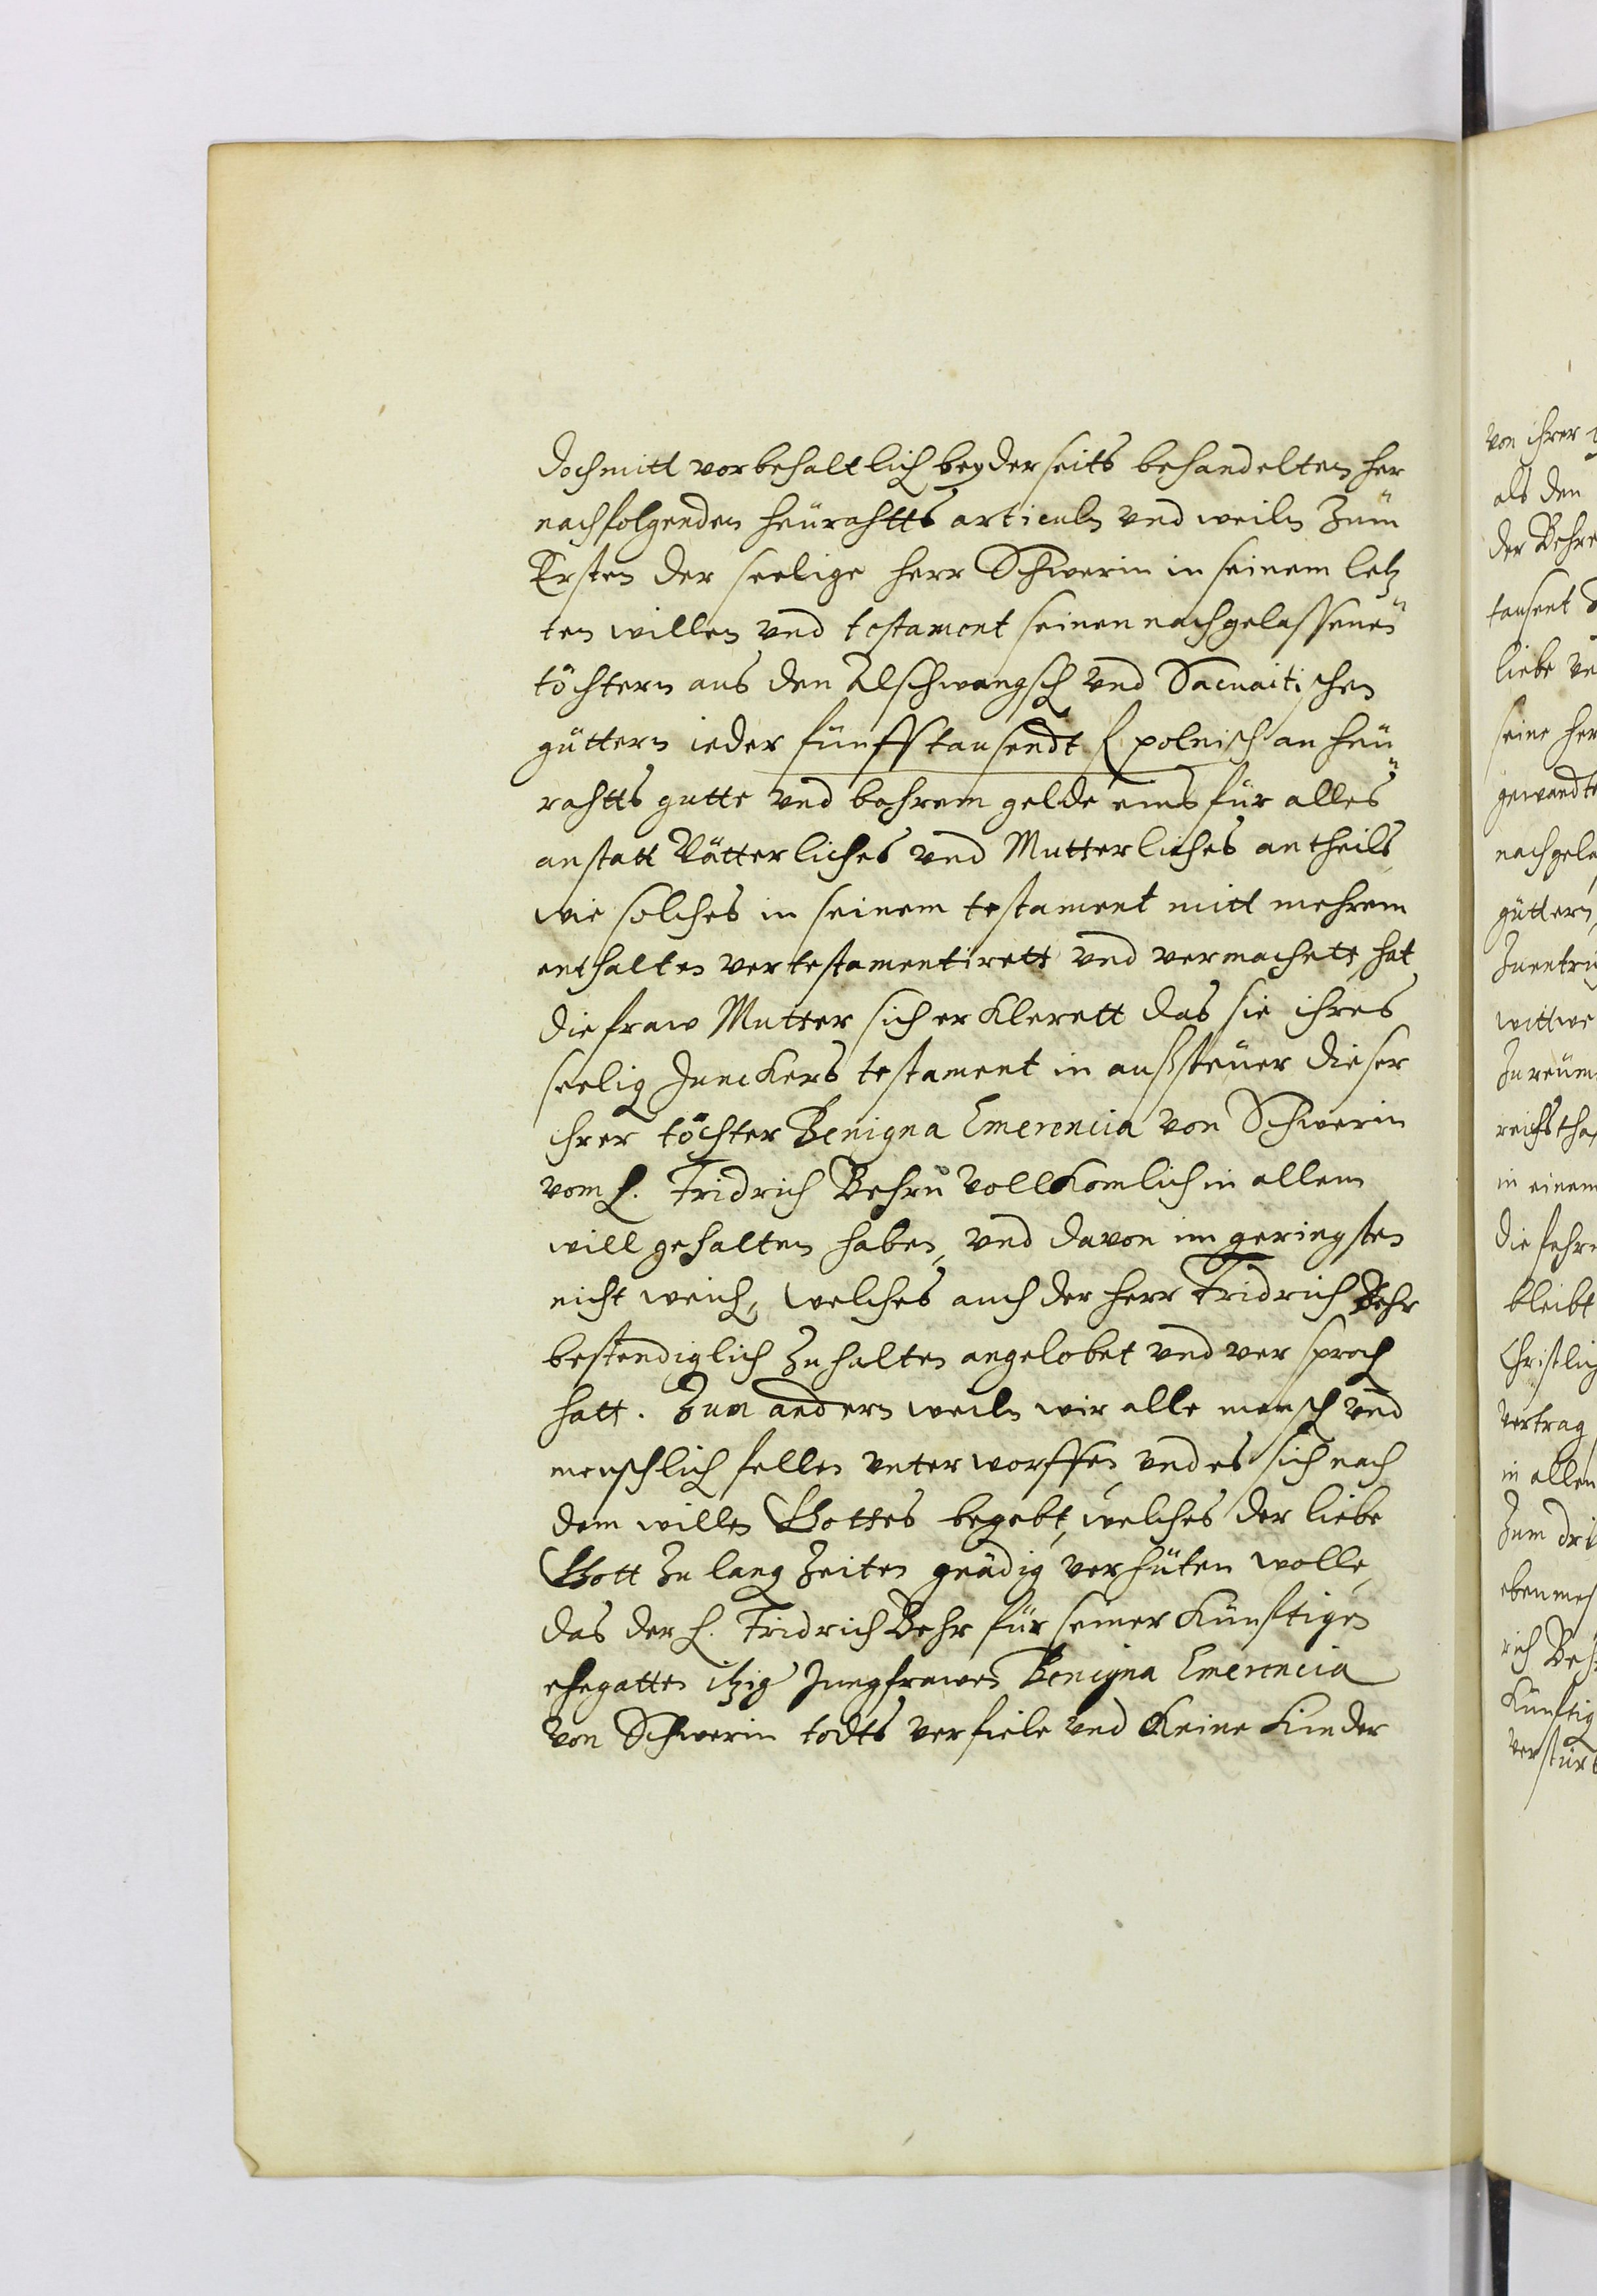 dochmitt vorbehaltlich beyderseits behandelten her
nachfolgenden heürahtts articuln vnd weiln Zum
Ersten der seelige herr Schwerin in seinem letz
ten willen vnd testament seinen nachgelassenen
töchtern aus den Alschwangsch vnd Sacnaitischen
güttern ieder fünfftausendt f polnisch an heü
rahtts gutte vnd bahrem gelde eins für alles
anstatt Vätterliches vnd Mutterliches antheils
wie solches in seinem testament mitt mehrem
enthalten vertestamentirett vnd vermachett, hat
die fraw Mutter sich erklerett das sie ihres
seelig Junckers testament in außsteuer dieser
ihrer töchter Benigna Emerencia von Schwerin
vom H. Fridrich Behrn vollkomlich in allem
will gehalten haben, vnd davon im geringsten
nicht weich, welches auch der herr Fridrich Behr
bestendiglich Zu halten angelobet vnd versproch
hatt. Zum andern weiln wir alle mensch vnd
menschlich fellen vnterworffen vnd es sich nach
dem willen Gottes begebt, welches der liebe
Gott Zu lang Zeiten gnädig verhüten wolle,
das der H. Fridrich Behr für seiner künfftigen
ehegatten itzig Jungfrawen Benigna Emerencia
von Schwerin todts verfiele vnd keine kinder
von ihrer
als den
der Behre
tausent
liebe
seine
gewandte
nachgela
güttern,
wittwe
in einem
bleibt
Christlich
vertrag
in allen
Zum dri
rich Beh
künfftig